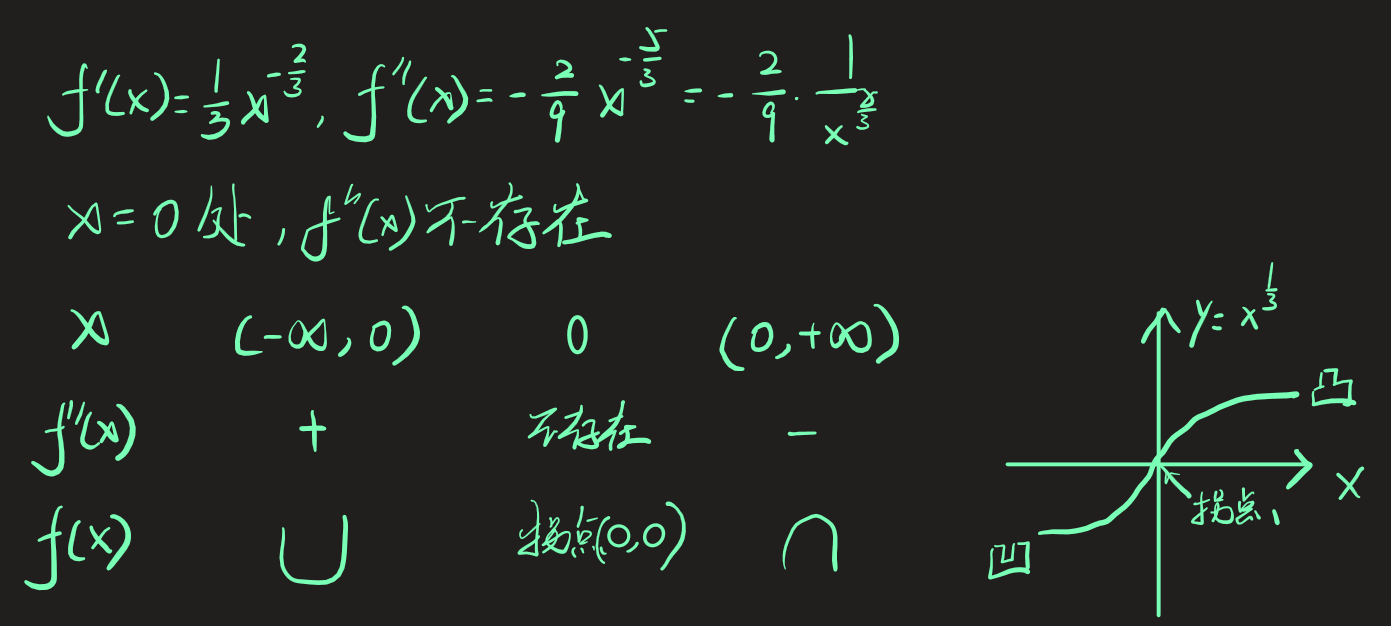 f'(x)=1/3 x^(-2/3), f''(x)=-2/9 x^(-5/3)=-2/9·1/x^(5/3)
x=0处,f''(x)不存在
x (-∞,0) 0 (0,+∞)
f''(x) + 不存在 -
f(x) ∪ 拐点(0,0) ∩
y=x^(1/3)
凸
x
拐点
凹